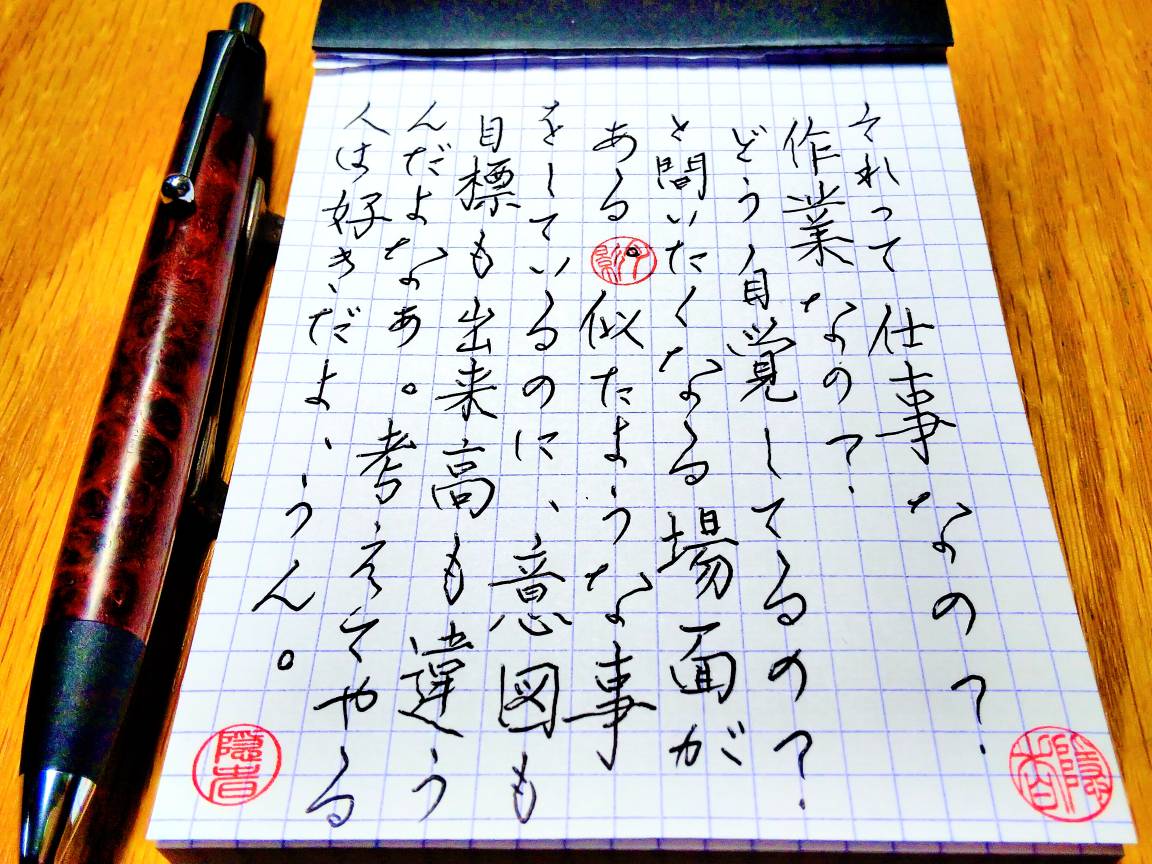 それって仕事なの？
作業なの？
どう自覚してるの？
と問いたくなる場面が
ある 似たような事
をしているのに、意図も
目標も出来高も違う
んだよなあ。考えてやる
人は好きだよ、うん。
隠者